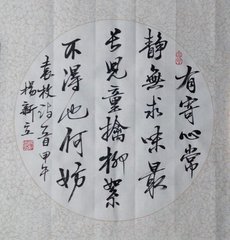 有寄心常
静無求味最
长兒童擒柳絮
不得也何妨
袁枚诗一首甲午
楊新立